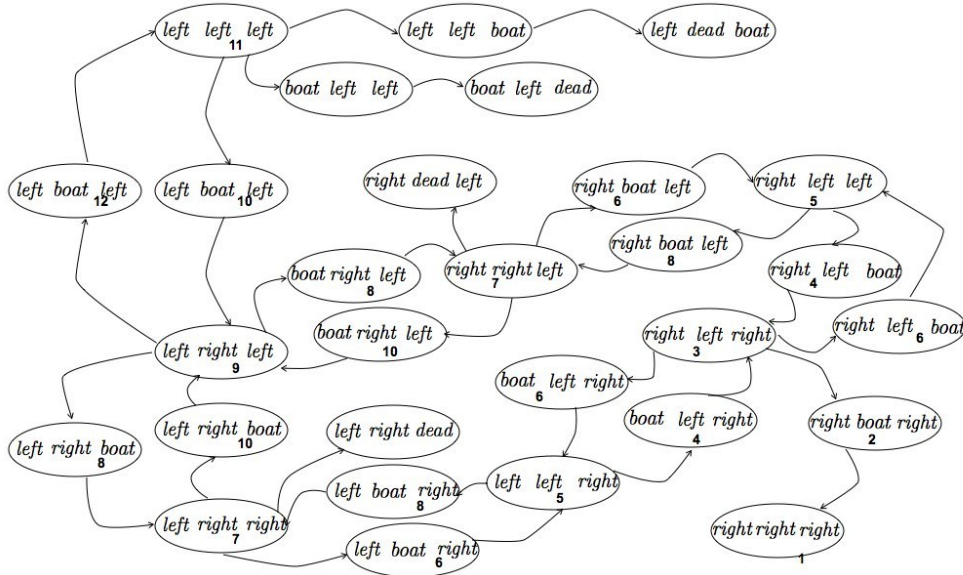 left left left
11
left left boat
left dead boat
boat left left
boat left dead
left boat left
12
left boat left
10
right dead left
right boat left
6
right left left
5
right boat left
8
boat right left
8
right right left
7
right left boat
4
boat right left
10
right left right
3
right left boat
6
left right left
9
boat left right
6
left right boat
8
left right boat
10
left right dead
boat left right
4
right boat right
2
left boat right
8
left left right
5
left right right
7
left boat right
6
right right right
1